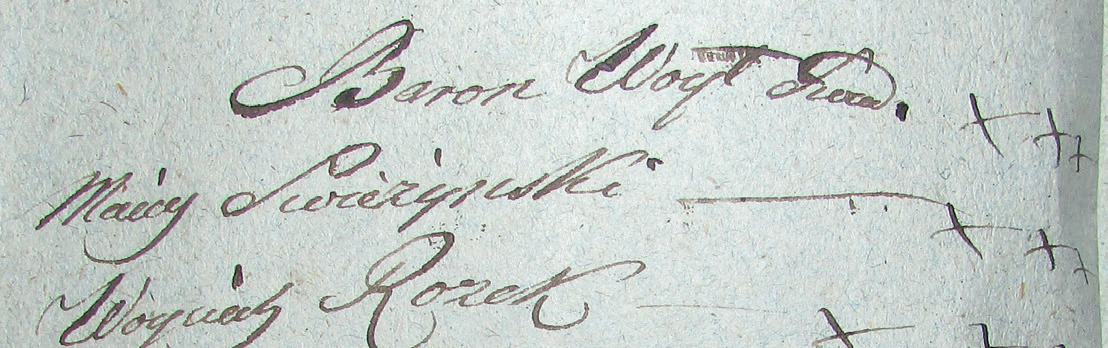 Baron Woyt Świad. ++
+
Maciey Swierzynski ++
+
Woyciech Rozek ++